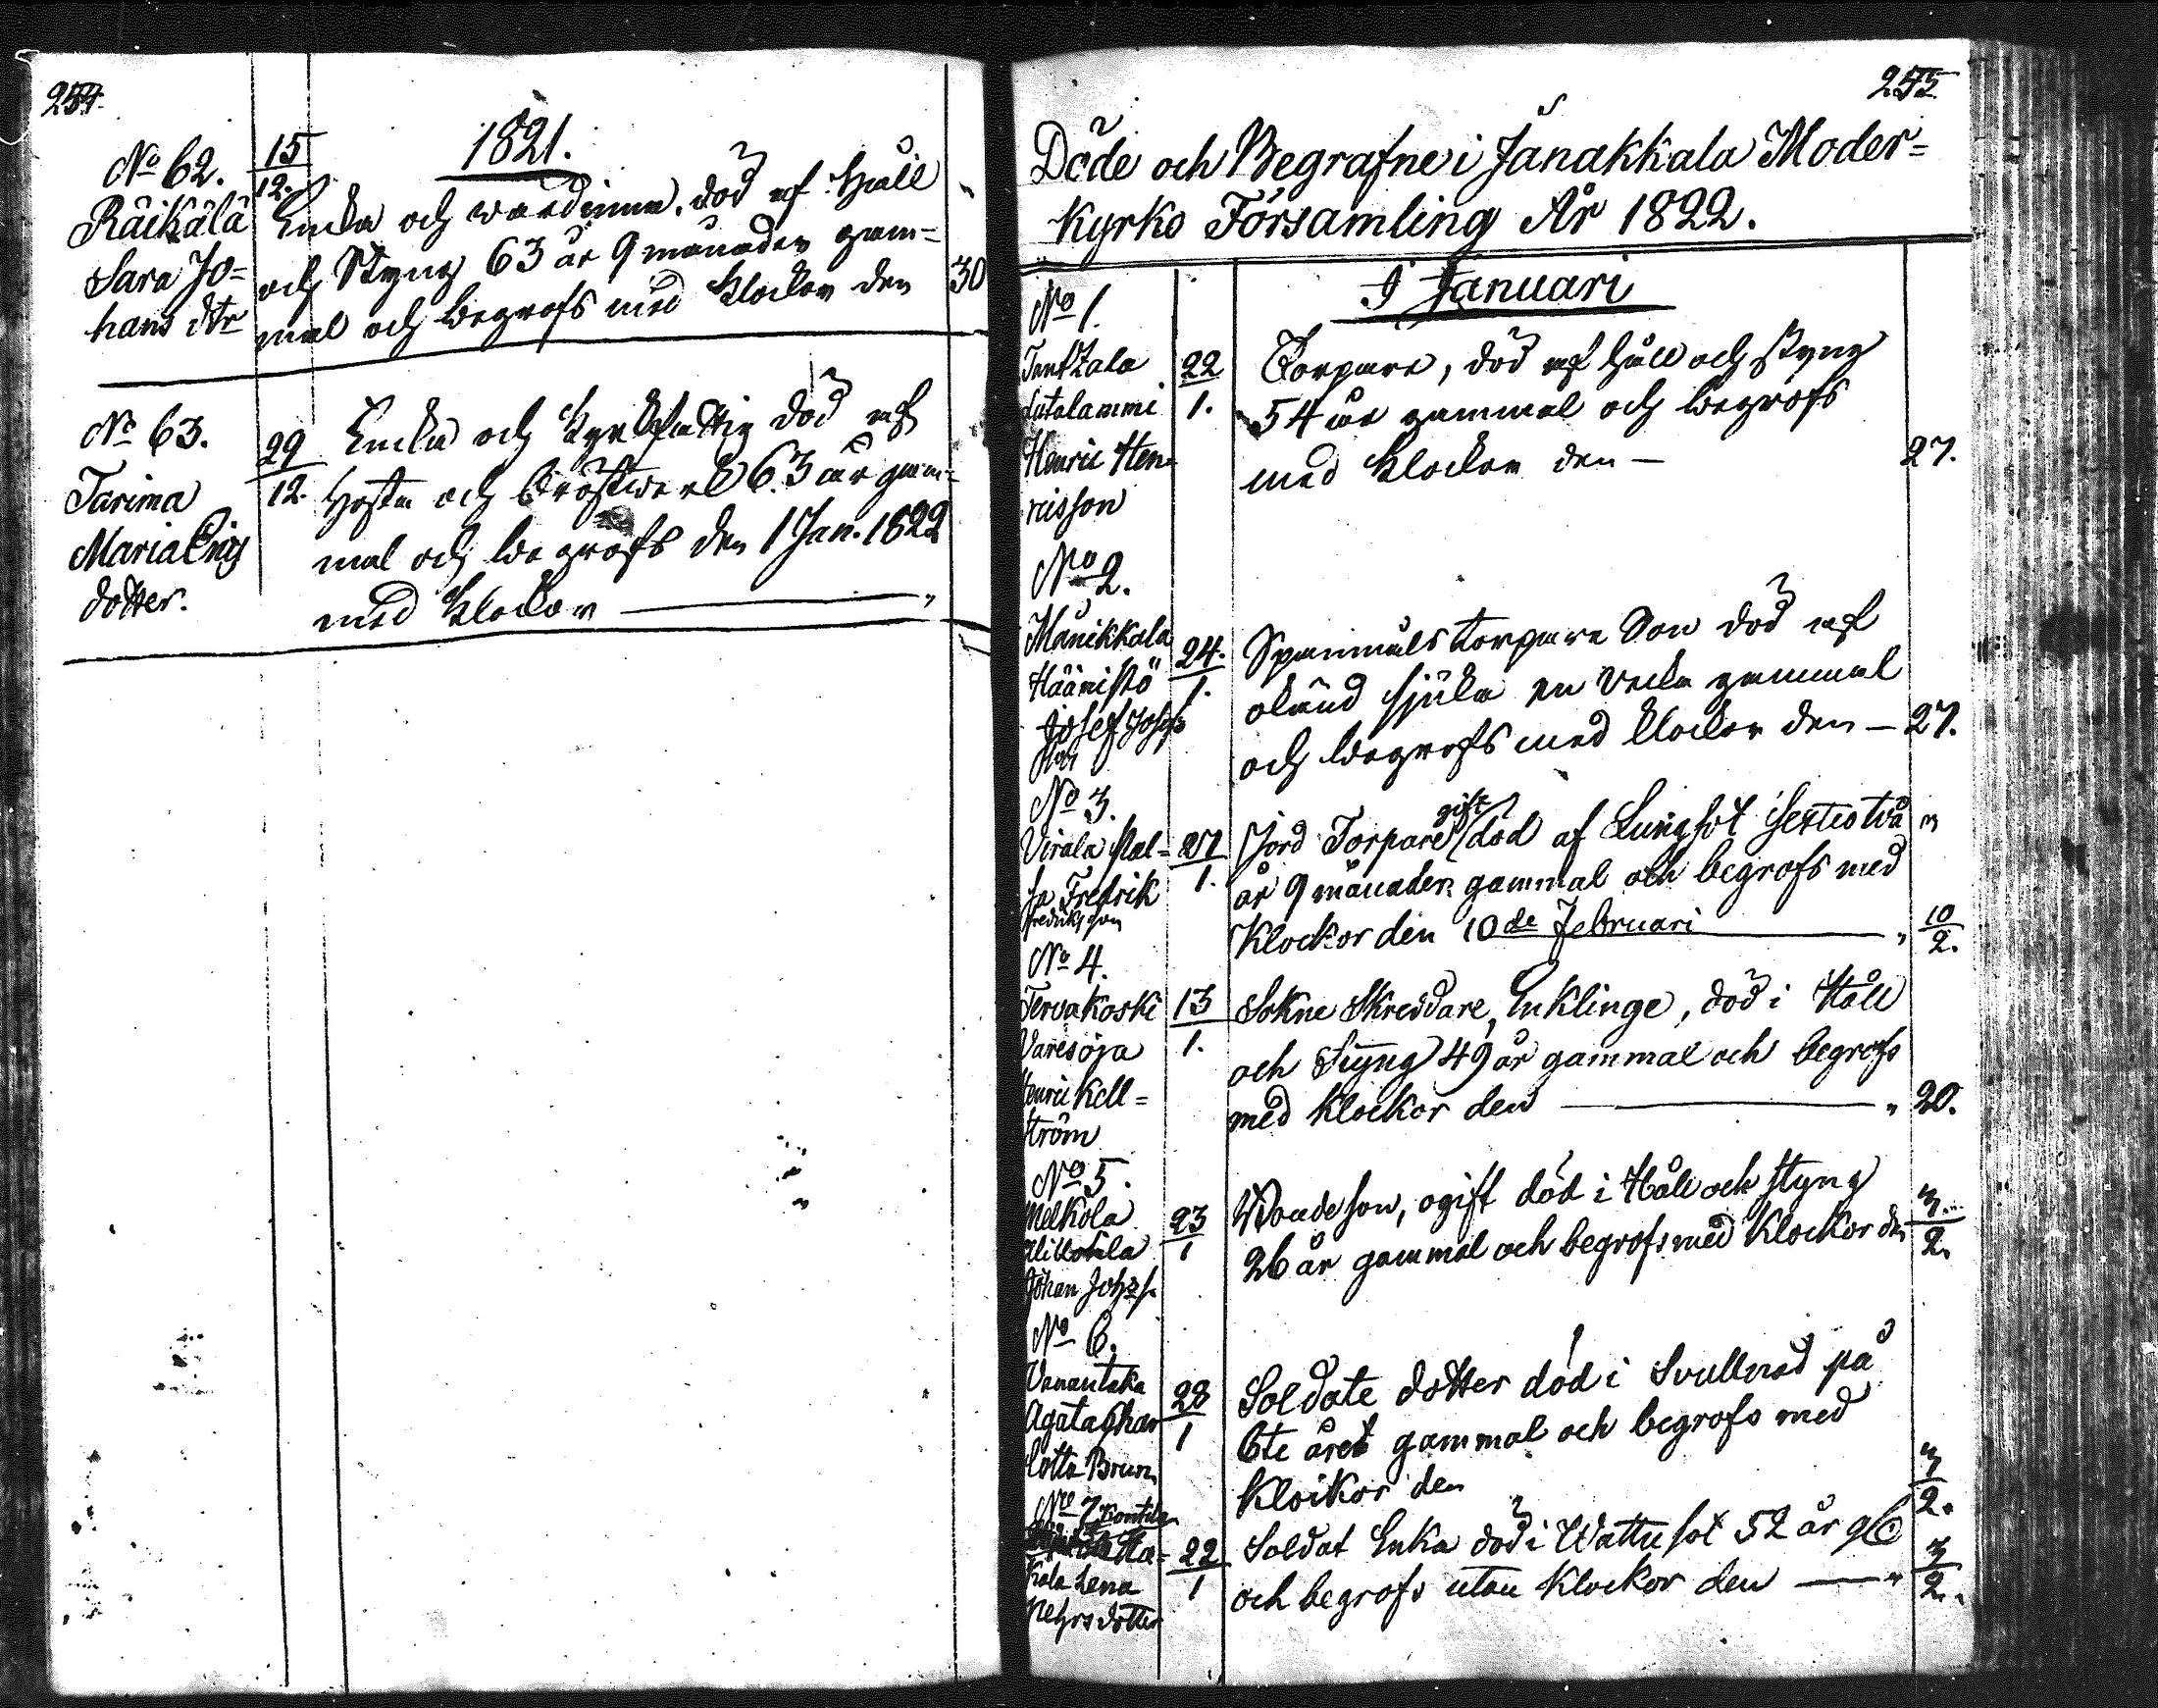 254.
1821.
No 62. 15/12.
Räikälä Enka och wärdinna, död af Håll
Sara Jo= och Styng 63 år 9 månader gam=
hans dtr mal och begrofs med klockor den 30
No 63. 29/12. Enka och Kyrkfattig död af
Tarima Hosta och Bröstwärk 63 år gam=
Maria Eriks mal och begrofs den 1 Jan. 1822
dotter. med klockor
255
Döde och Begrafne i Janakkala Moder=
kyrko Församling År 1822.
I Januari
No 1.
Tanttala 22/1. Torpare, död af håll och styng
Lutalammi 54 år gammal och begrofs
Henric Hen= med klockor den — 27.
ricsson
No 2.
Manikkala 24./1. Spanmåls torpare Son död af
Häänistö okänd sjuka en vecka gammal
Josef Josefs och begrofs med klockor den — 27.
son
No 3.
Virala 27/1. Jord Torpare gift död af Lungsot sextiotvå
Fredrik år 9 månader gammal och begrofs med
Fredriksson Klockor den 10de Februari 10/2.
No 4.
Tervakoski 13/1. Sokne Skreddare, Enklinge, död i Håll
Varesoja och Styng 49 år gammal och begrofs
Henric Kell= med klockor den 20.
ström
No 5.
Melkola 23/1 Bonde son, ogift död i Håll och styng
Alikohla 26 år gammal och begrofs med Klockor den 3/2.
Johan Johs s.
No 6.
Vanantaka 28/1 Soldate dotter död i Svullnad på
Agata Char 6te året gammal och begrofs med
lotta Brun Klockor den 3/2.
No 7 Kontila
22/1 Soldat Enka död i Wattusot 52 år gl
kala Lena och begrofs utan Klockor den — 3/2.
Mehrsdotter